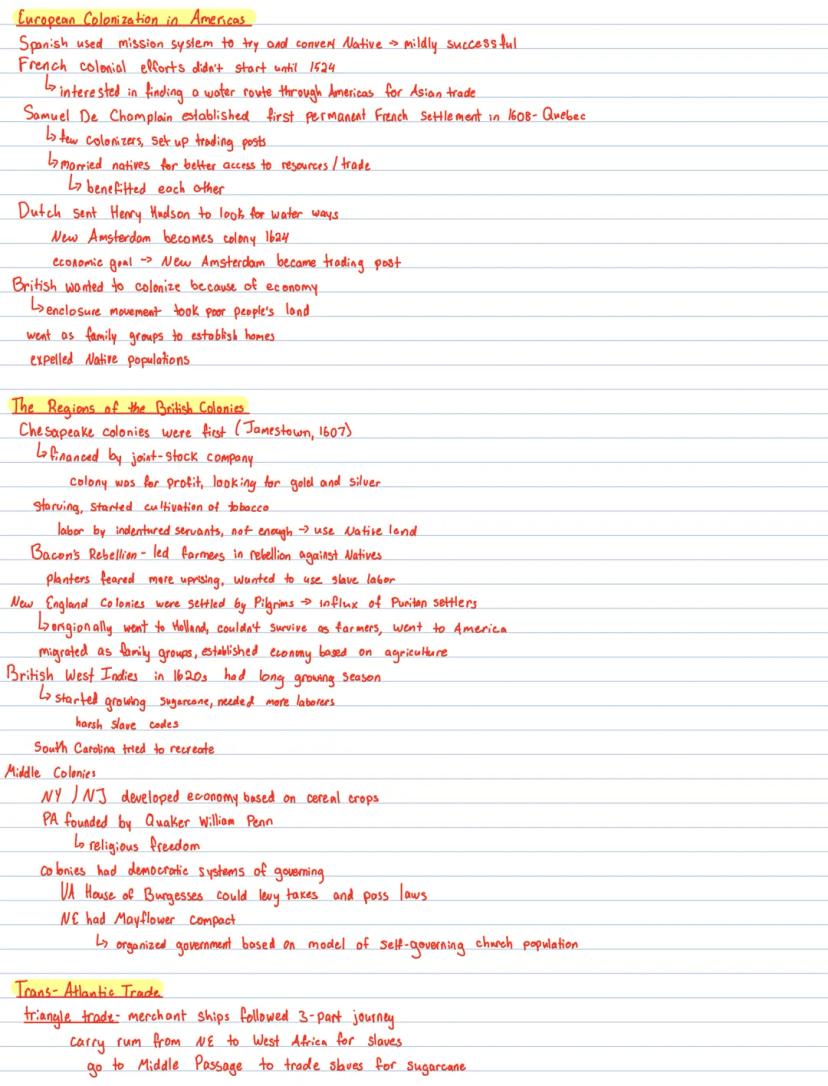 European Colonization in Americas
Spanish used mission system to try and convert Native → mildly successful
French colonial efforts didn't start until 1524
↳ interested in finding a water route through Americas for Asian trade
Samuel De Champlain established first permanent French settlement in 1608- Quebec
↳ few colonizers, set up trading posts
↳ married natives for better access to resources / trade
↳ benefitted each other
Dutch sent Henry Hudson to look for water ways
New Amsterdam becomes colony 1624
economic goal → New Amsterdam became trading post
British wanted to colonize because of economy
↳ enclosure movement took poor people's land
went as family groups to establish homes
expelled Native populations
The Regions of the British Colonies
Chesapeake colonies were first (Jamestown, 1607)
↳ financed by joint-stock company
colony was for profit, looking for gold and silver
starving, started cultivation of tobacco
labor by indentured servants, not enough → use Native land
Bacon's Rebellion - led farmers in rebellion against Natives
planters feared more uprising, wanted to use slave labor
New England Colonies were settled by Pilgrims → influx of Puritan settlers
↳ origionally went to Holland, couldn't survive as farmers, went to America
migrated as family groups, established economy based on agriculture
British West Indies in 1620s had long growing season
↳ started growing sugarcane, needed more laborers
harsh slave codes
South Carolina tried to recreate
Middle Colonies
NY / NJ developed economy based on cereal crops
PA founded by Quaker William Penn
↳ religious freedom
colonies had democratic systems of governing
VA House of Burgesses could levy taxes and pass laws
NE had Mayflower compact
↳ organized government based on model of self-governing church population
Trans-Atlantic Trade
triangle trade- merchant ships followed 3-part journey
carry rum from NE to West Africa for slaves
go to Middle Passage to trade slaves for sugarcane